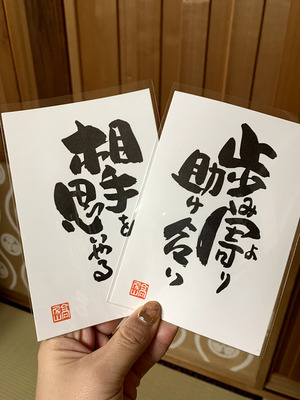 相手を
思いやる
歩み寄り
助け合い